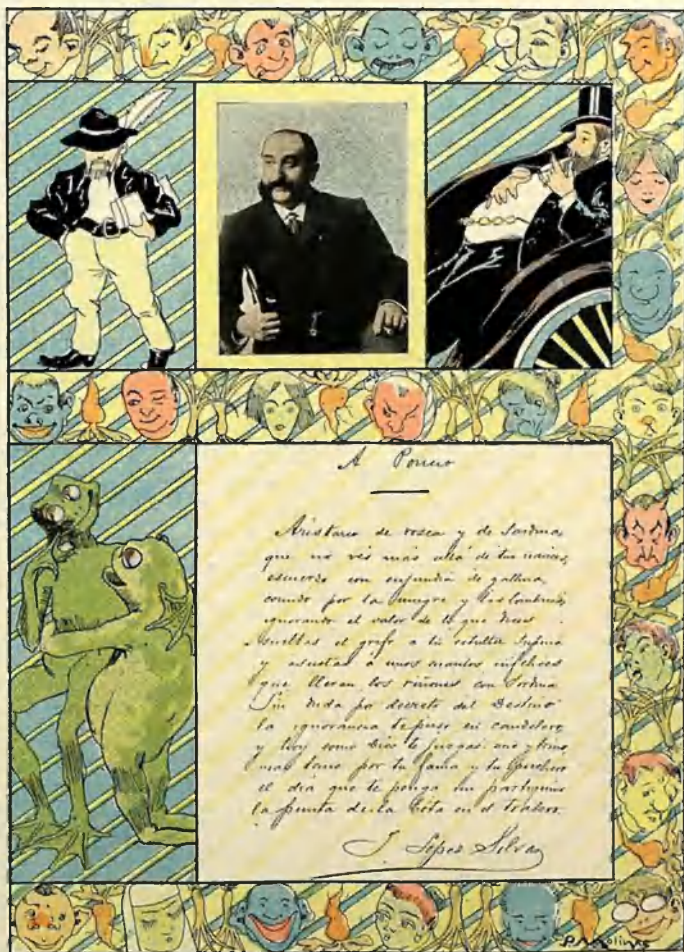 A Porrero
Aristarco de rosca y de sordina
que no vés más allá de tus narices,
escuerzo con enjundia de gallina,
comido por la mugre y las lombrices,
ignorando el valor de lo que dices
y asustas a unos cuantos infelices
que llevan los riñones con sordina
Sin duda por decreto del Destino
la ignorancia te puso en candelero
y hoy como Dios te juzgas: uno y trino,
mas temo por tu fama y tu puchero
el día que te ponga un
la punta de la bota en el trasero.
J. López Silva